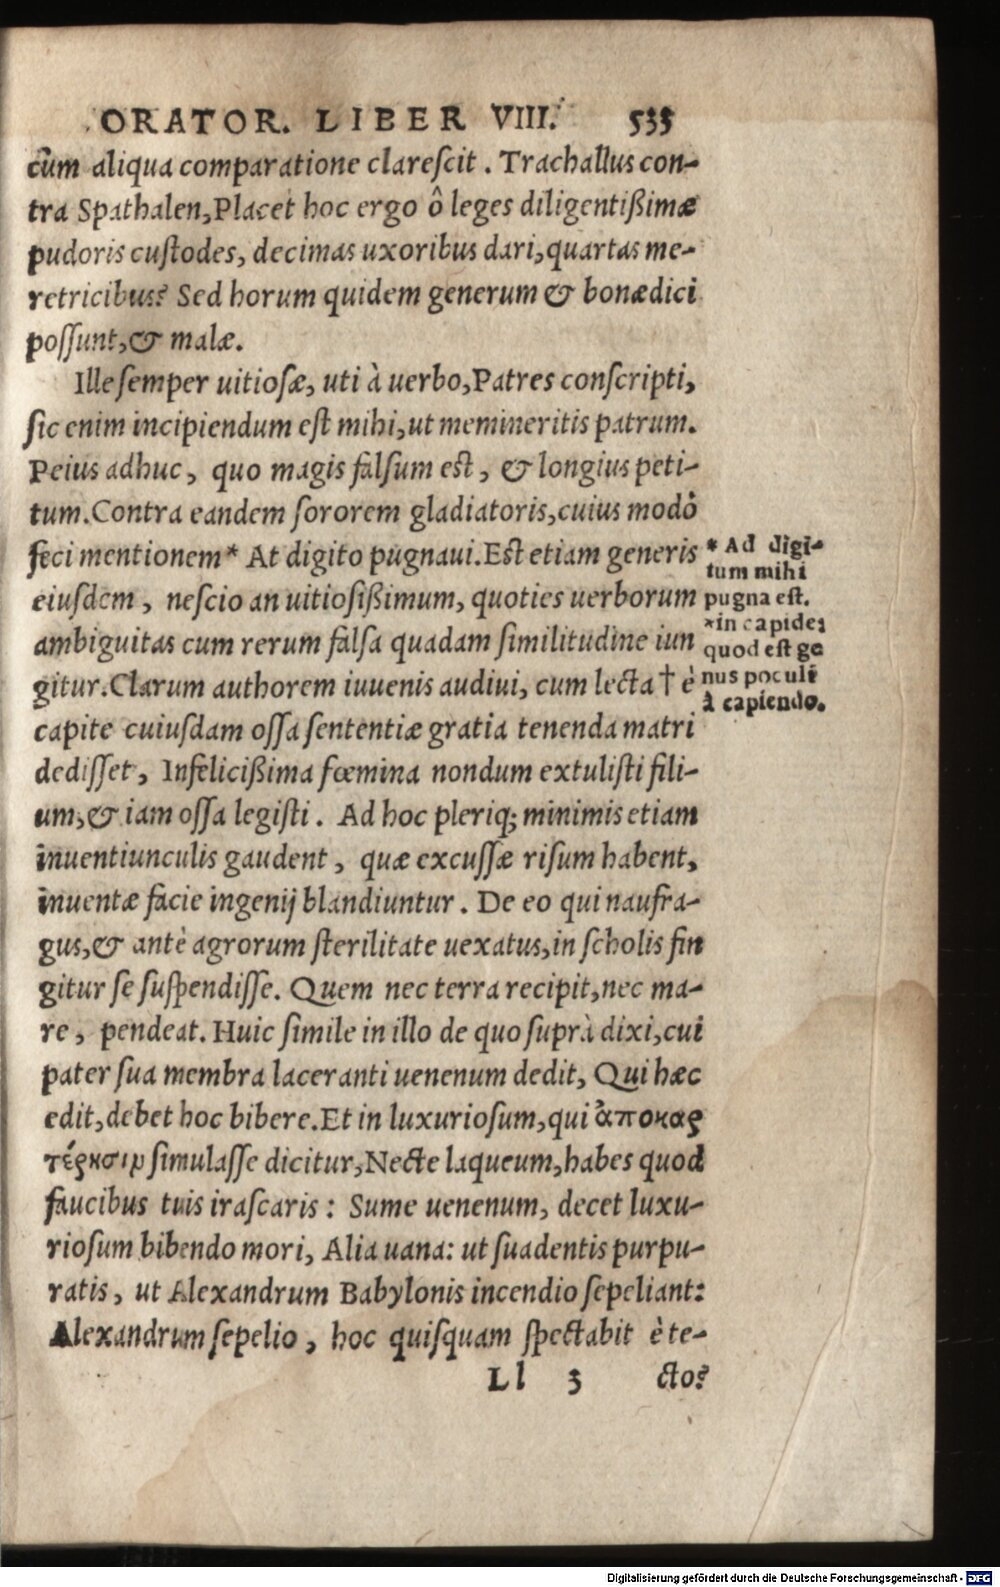 ORATOR. LIBER VIII. 535
cùm aliqua comparatione clarescit. Trachallus con-
tra Spathalen, Placet hoc ergo ô leges diligentißimæ
pudoris custodes, decimas uxoribus dari, quartas me-
retricibus? Sed horum quidem generum & bonæ dici
possunt, & malæ.
Ille semper uitiosæ, uti à uerbo, Patres conscripti,
sic enim incipiendum est mihi, ut memineritis patrum.
Peius adhuc, quo magis falsum est, & longius peti-
tum. Contra eandem sororem gladiatoris, cuius modò
feci mentionem* At digito pugnaui. Est etiam generis
eiusdem, nescio an uitiosißimum, quoties uerborum
ambiguitas cum rerum falsa quadam similitudine iun
gitur. Clarum authorem iuuenis audiui, cum lecta † è
capite cuiusdam ossa sententiæ gratia tenenda matri
dedisset, Infelicißima fœmina nondum extulisti fili-
um, & iam ossa legisti. Ad hoc pleriq; minimis etiam
inuentiunculis gaudent, quæ excussæ risum habent,
inuentæ facie ingenij blandiuntur. De eo qui naufra-
gus, & antè agrorum sterilitate uexatus, in scholis fin
gitur se suspendisse. Quem nec terra recipit, nec ma-
re, pendeat. Huic simile in illo de quo suprà dixi, cui
pater sua membra laceranti uenenum dedit, Qui hæc
edit, debet hoc bibere. Et in luxuriosum, qui ἀποκαρ
τέρησιν simulasse dicitur, Necte laqueum, habes quod
faucibus tuis irascaris: Sume uenenum, decet luxu-
riosum bibendo mori, Alia uana: ut suadentis purpu-
ratis, ut Alexandrum Babylonis incendio sepeliant:
Alexandrum sepelio, hoc quisquam spectabit è te-
Ll 3 cto?
* Ad digi-
tum mihi
pugna est.
*in capide:
quod est ge
nus poculi
à capiendo.
Digitalisierung gefördert durch die Deutsche Forschungsgemeinschaft - DFG